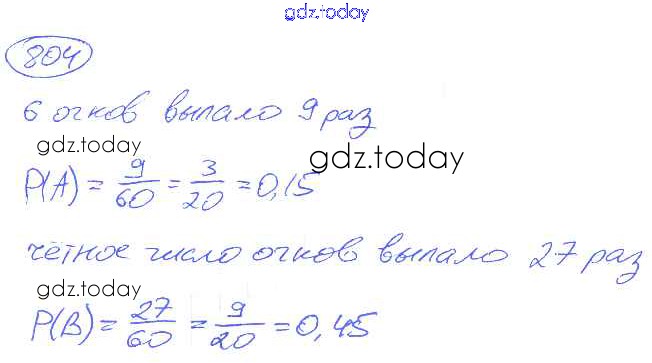 gdz.today
804
6 очков выпало 9 раз
gdz.today
gdz.today
P(A) = 9/60 = 3/20 = 0,15
чётное число очков выпало 27 раз
gdz.today
P(B) = 27/60 = 9/20 = 0,45